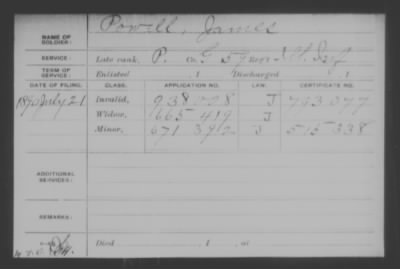 Powell, James
NAME OF SOLDIER:
SERVICE: Late rank, P. Co. G 59 Reg't Ill. Inf
TERM OF SERVICE: Enlisted , 1 Discharged , 1
DATE OF FILING. CLASS. APPLICATION NO. LAW. CERTIFICATE NO.
1890 July 21 Invalid, 938 028 J 743 077
Widow, 665 419 J
Minor, 671 392 J 515 338
ADDITIONAL SERVICES:
REMARKS:
Died , 1 , at